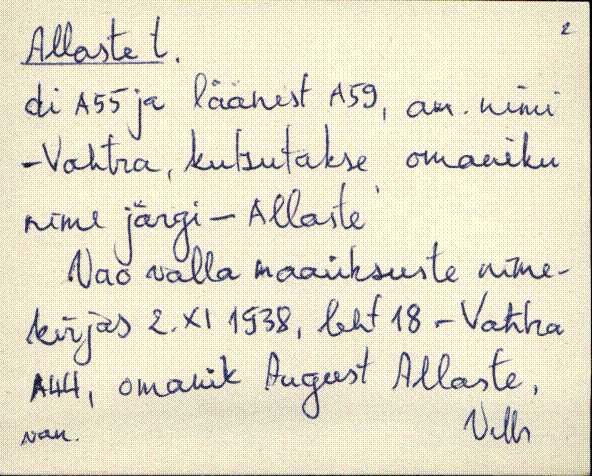 2
Allaste t.
di A55 ja läänest A59, am. nimi
-Vahtra, kutsutakse omaniku
nime järgi - Allaste
Vao valla maaüksuste nime-
kirjas 2. XI 1938, leht 18 - Vahtra
A44, omanik August Allaste,
van.